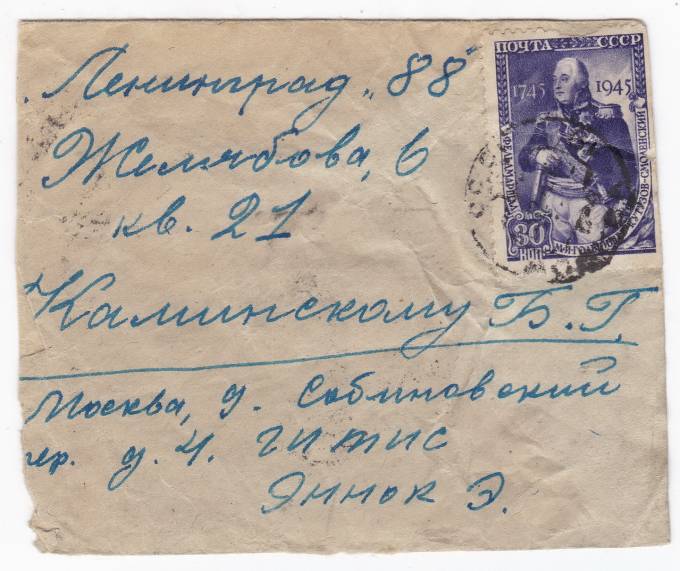 Ленинград „88"
Желябова, 6
кв. 21
Каминскому Б. Г.
Москва, д. Собиновский
пер. д. 4. гитис
Яннок Э.
ПОЧТА СССР
1745 1945
ФЕЛЬДМАРШАЛ
КУТУЗОВ-СМОЛЕНСКИЙ
30
КОП